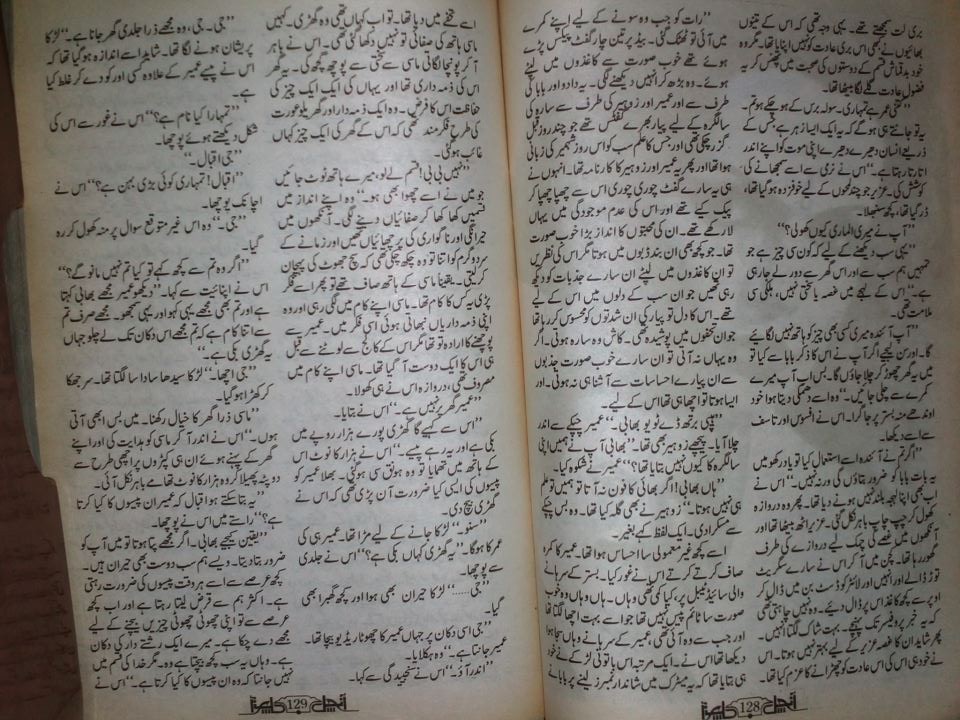 بری لت سمجھتے تھے۔ یہی وجہ تھی کہ اس کے تینوں
بھائیوں نے بھی اس بری عادت کو نہیں اپنایا تھا۔ مگر وہ
خود بدقماش قسم کے دوستوں کی صحبت میں پھنس کر یہ
فضول عادت گلے لگا بیٹھا تھا۔
”کتنی عمر ہے تمہاری۔ سولہ برس کے ہو چکے ہو تم۔
یہ تو جانتے ہی ہوگے کہ یہ ایک ایسا زہر ہے جس کے
ذریعے انسان دھیرے دھیرے اپنی موت کو اپنے اندر
اتارتا رہتا ہے۔“ اس نے نرمی سے اسے سمجھانے کی
کوشش کی۔ عزیر جو چند لمحوں کے لیے خوفزدہ ہو گیا تھا،
ڈر گیا تھا، کچھ سنبھلا۔
”آپ نے میری الماری کیوں کھولی؟“
”یہی سب دیکھنے کے لیے کہ کون سی چیز ہے جو
تمہیں ہم سب سے اور اس گھر سے دور لے جا رہی
ہے۔“ اس کے لہجے میں غصہ یا سختی نہیں، ہلکی سی
ملامت تھی۔
”آپ آئندہ میری کسی بھی چیز کو ہاتھ نہیں لگائیے
گا۔ اور سن لیجیے اگر آپ نے اس کا ذکر بابا سے کیا تو
میں یہ گھر چھوڑ کر چلا جاؤں گا۔ بس اب آپ میرے
کمرے سے چلی جائیں۔“ وہ اسے دھمکی دیتا ہوا خود
اوندھے منہ بستر پر جا گرا۔ اس نے افسوس اور تاسف
سے اسے دیکھا۔
”اگر تم نے آئندہ اسے استعمال کیا تو یاد رکھو میں
یہ بات بابا کو ضرور بتاؤں گی ورنہ نہیں۔“ اس نے
اب بھی اپنا لہجہ بلند نہیں ہونے دیا تھا۔ پھر وہ دروازہ
کھول کر چپ چاپ باہر نکل گئی۔ عزیر اٹھ بیٹھا تھا اور
آنکھوں میں غصے کی چمک لیے دروازے کی طرف
گھور رہا تھا۔ کچن میں آ کر اس نے سارے سگریٹ
توڑ ڈالے اور انہیں اور لائٹر کو ڈسٹ بن میں ڈال کر
اوپر سے کچھ کاغذ اس پر ڈال دیے۔ وہ نہیں چاہتی تھی
کہ یہ خبر پروفیسر تک پہنچے۔ بہت شاک لگتا انہیں۔
پھر شاید ان کا غصہ عزیر کے لیے بہتر نہیں ہوتا۔ اس
نے خود ہی اس کی اس عادت کو چھڑانے کا عزم کیا تھا۔
”رات کو جب وہ سونے کے لیے اپنے کمرے
میں آئی تو ٹھٹک گئی۔ بیڈ پر تین چار گفٹ پیکس پڑے
ہوئے تھے خوب صورت سے کاغذوں میں لپٹے
ہوئے۔ وہ بڑھ کر انہیں دیکھنے لگی۔ یہ دادو اور بابا کی
طرف سے اور عمیر اور زوہیر کی طرف سے سارہ کی
سالگرہ کے لیے پیار بھرے گفٹس تھے جو چند روز قبل
گزر چکی تھی اور جس کا علم سب کو اس روز سمیر کی زبانی
ہوا تھا اور پھر یہ عمیر اور زوہیر کا کارنامہ تھا۔ انہوں نے
ہی یہ سارے گفٹ چوری چوری اس سے چھپا چھپا کر
پیک کیے تھے اور اس کی عدم موجودگی میں یہاں
لا رکھے تھے۔ ان کی محبتوں کا انداز بڑا خوب صورت
تھا۔ جو کچھ بھی ان بند ڈبوں میں ہوتا مگر اس کی نظریں
تو ان کاغذوں میں لپٹے ان سارے جذبات کو دیکھ
رہی تھیں جو ان سب کے دلوں میں اس کے لیے
تھے۔ اس کا دل تو پیار کی ان شدتوں کو محسوس کر رہا تھا
جو ان تحفوں میں پوشیدہ تھی۔ کاش وہ سارہ ہوتی۔ اگر
وہ یہاں نہ آتی تو ان سارے خوب صورت جذبوں
سے ان پیارے احساسات سے آشنا ہی نہ ہوتی۔ اور
ایسا ہوتا تو اچھا ہی تھا اس کے لیے۔
”ہیپی برتھ ڈے ٹو یو بھابی۔“ عمیر چپکے سے اندر
چلا آیا۔ پیچھے زوہیر بھی تھا۔ ”بھابی آپ نے ہمیں اپنی
سالگرہ کا کیوں نہیں بتایا تھا؟“ عمیر نے شکوہ کیا۔
”ہاں بھابی! اگر بھائی کا فون نہ آتا تو ہمیں تو علم
ہی نہیں ہوتا۔“ زوہیر نے بھی گلہ کیا تھا۔ وہ بس چپکے
سے مسکرا دی۔ ایک لفظ کہے بغیر۔
اسے کچھ غیر معمولی سا احساس ہوا تھا۔ عمیر کا کمرہ
صاف کرتے کرتے اس نے غور کیا۔ بستر کے سرہانے
والی سائیڈ ٹیبل پر، کیا کمی تھی وہاں۔ ہاں وہاں وہ خوب
صورت سا ٹائم پیس نہیں تھا جو اسے بہت اچھا لگتا تھا
اور جب سے وہ آئی تھی، عمیر کے سرہانے وہاں سجا ہوا
دیکھا تھا اس نے۔ ایک مرتبہ اس باتونی لڑکے نے خود
ہی بتایا تھا کہ یہ میٹرک میں شاندار نمبرز لینے پر بابا نے
128
اسے تحفے میں دیا تھا۔ تو اب کہاں تھی وہ گھڑی۔ کہیں
ماسی ہاتھ کی صفائی تو نہیں دکھا گئی تھی۔ اس نے باہر
آ کر پونچا لگاتی ماسی سے سختی سے پوچھ گچھ کی۔ یہ گھر
اس کی ذمہ داری تھا اور یہاں کی ایک ایک چیز کی
حفاظت اس کا فرض۔ وہ ایک ذمہ دار اور گھریلو عورت
کی طرح فکرمند تھی کہ اس کے گھر کی ایک چیز کہاں
غائب ہو گئی۔
”نہیں بی بی! قسم لے لو، میرے ہاتھ ٹوٹ جائیں
جو میں نے اسے چھوا بھی ہو۔“ وہ اپنے انداز میں
قسمیں کھا کھا کر صفائیاں دینے لگی۔ آنکھوں میں
حیرانگی اور ناگواری کی پرچھائیاں تھیں اور زمانے کے
سرد و گرم کو اتنا تو وہ چکھ چکی تھی کہ سچ جھوٹ کی پہچان
کر لیتی۔ یقیناً ماسی کے ہاتھ صاف تھے تو پھر اسے فکر
پڑی یہ کس کا کام تھا۔ ماسی اپنے کام میں لگی رہی اور وہ
اپنی ذمہ داریاں نبھاتی ہوئی اسی فکر میں۔ عمیر سے
پوچھنے کا ارادہ تو تھا مگر اس کے کالج سے لوٹنے سے قبل
ہی اس کا ایک دوست آ گیا تھا۔ ماسی اپنے کام میں
مصروف تھی، دروازہ اس نے ہی کھولا۔
”عمیر گھر پر نہیں ہے۔“ اس نے بتایا۔
”اس سے کہیے گا گھڑی پورے ہزار روپے میں
بکی ہے اور یہ رہے پیسے۔“ اس نے ہزار کا نوٹ اس
کے ہاتھ میں تھمایا تو وہ ہونق سی ہو گئی۔ بھلا عمیر کو
پیسوں کی ایسی کیا ضرورت آن پڑی تھی کہ اس نے
گھڑی بیچ دی۔
”سنو۔“ لڑکا جانے کے لیے مڑا تھا۔ عمیر ہی کی
عمر کا ہوگا۔ ”یہ گھڑی کہاں بکی ہے؟“ اس نے جلدی
سے پوچھا۔
”جی......“ لڑکا حیران بھی ہوا اور کچھ گھبرا بھی
گیا۔
”جی اسی دکان پر جہاں عمیر کا چھوٹا ریڈیو بیچا تھا۔
عمیر جانتا ہے۔“ وہ ہکلایا۔
”اندر آؤ۔“ اس نے سنجیدگی سے کہا۔
”جی۔ جی، وہ مجھے ذرا جلدی گھر جانا ہے۔“ لڑکا
پریشان ہونے لگا تھا۔ شاید اسے اندازہ ہو گیا تھا کہ
اس نے پیسے عمیر کے علاوہ کسی اور کو دے کر غلط کیا
ہے۔
”تمہارا کیا نام ہے؟“ اس نے غور سے اس کی
شکل دیکھتے ہوئے پوچھا۔
”جی اقبال۔“
”اقبال! تمہاری کوئی بڑی بہن ہے؟“ اس نے
اچانک پوچھا۔
”جی۔“ وہ اس غیر متوقع سوال پر منہ کھول کر رہ
گیا۔
”اگر وہ تم سے کچھ کہے تو کیا تم نہیں مانو گے؟“
اس نے اپنائیت سے کہا۔ ”دیکھو عمیر مجھے بھابی کہتا
ہے اور تم بھی مجھے یہی کہو اور یہی سمجھو۔ مجھے صرف تم
سے اتنا کام ہے کہ تم مجھے اس دکان تک لے چلو جہاں
یہ گھڑی بکی ہے۔“
”جی اچھا۔“ لڑکا سیدھا سادا سا لگتا تھا۔ سر جھکا
کر کھڑا ہو گیا۔
”ماسی ذرا گھر کا خیال رکھنا۔ میں بس ابھی آتی
ہوں۔“ اس نے اندر آ کر ماسی کو ہدایت کی اور اپنے
گھر کے پہنے ہوئے ان ہی کپڑوں پر اچھی طرح سے
دوپٹہ پھیلا کر وہ ہزار کا نوٹ تھامے باہر نکل آئی۔
”یہ بتا سکتے ہو اقبال کہ عمیر ان پیسوں کا کیا کرتا
ہے؟“ راستے میں اس نے پوچھا۔
”یقین کیجیے بھابی۔ اگر مجھے پتا ہوتا تو میں آپ کو
ضرور بتا دیتا۔ ویسے ہم سب دوست بھی حیران ہیں۔
کچھ عرصے سے اسے ہر وقت پیسوں کی ضرورت رہتی
ہے۔ اکثر ہم سے قرض لیتا رہتا ہے اور اب کچھ
عرصے سے تو اپنی چھوٹی چھوٹی چیزیں بیچنے کے لیے
مجھے دے چکا ہے۔ میرے ایک رشتے دار کی دکان
ہے۔ وہاں یہ سب کچھ بیچتا ہے وہ۔ مگر خدا کی قسم میں
نہیں جانتا کہ وہ ان پیسوں کا کیا کرتا ہے۔“ اس نے
129